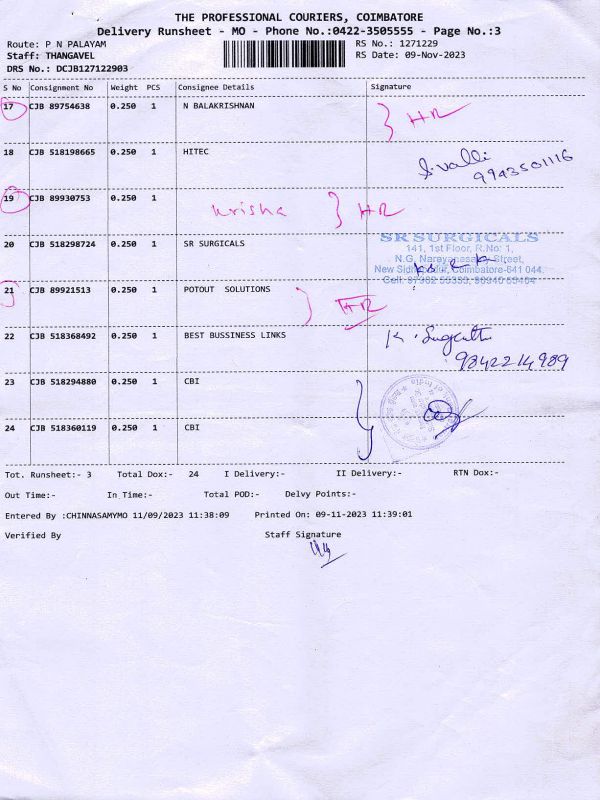 THE PROFESSIONAL COURIERS, COIMBATORE
Delivery Runsheet - MO - Phone No.:0422-3505555 - Page No.:3
Route: P N PALAYAM RS No.: 1271229
Staff: THANGAVEL RS Date: 09-Nov-2023
DRS No.: DCJB127122903
S No Consignment No Weight PCS Consignee Details Signature
17 CJB 89754638 0.250 1 N BALAKRISHNAN HR
18 CJB 518198665 0.250 1 HITEC S. Valli
9943501116
19 CJB 89930753 0.250 1 Krisha HR
20 CJB 518298724 0.250 1 SR SURGICALS SR SURGICALS
141, 1st Floor, R.No: 1,
N.G. Narayanasamy Street,
New Sidhapudur, Coimbatore-641 044.
21 CJB 89921513 0.250 1 POTOUT SOLUTIONS HR
22 CJB 518368492 0.250 1 BEST BUSSINESS LINKS
9842214989
23 CJB 518294880 0.250 1 CBI
24 CJB 518360119 0.250 1 CBI
Tot. Runsheet:- 3 Total Dox:- 24 I Delivery:- II Delivery:- RTN Dox:-
Out Time:- In Time:- Total POD:- Delvy Points:-
Entered By :CHINNASAMYMO 11/09/2023 11:38:09 Printed On: 09-11-2023 11:39:01
Verified By Staff Signature